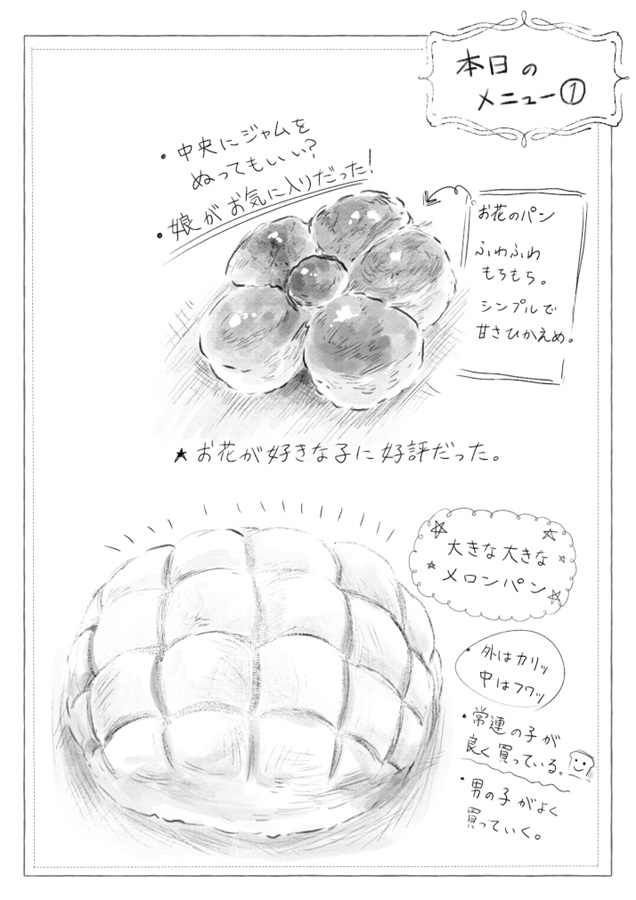 本日の
メニュー①
・中央にジャムを
ぬってもいい?
・娘がお気に入りだった!
お花のパン
ふわふわ
もちもち。
シンプルで
甘さひかえめ。
★お花が好きな子に好評だった。
大きな大きな
メロンパン
・外はカリッ
中はフワッ
・常連の子が
良く買っている。
・男の子がよく
買っていく。